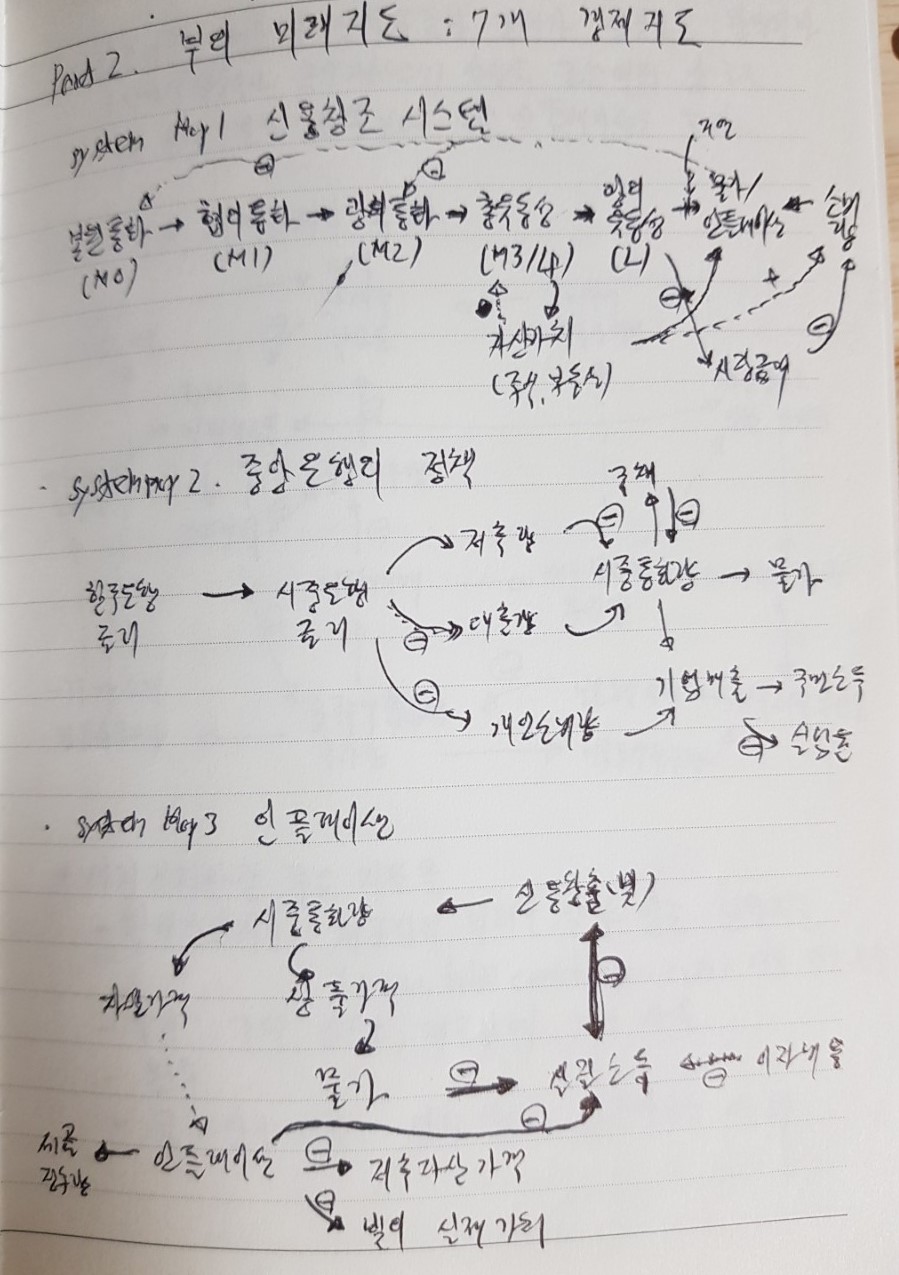 Part 2. 부의 미래지도 : 7개 경제지도
system Map 1 신용창조 시스템
지연
본원통화 → 협의통화 → 광의통화 → 총유동성 → 광의유동성 → 물가/인플레이션 ← 소비
(M0) (M1) (M2) (M3/4) (L)
자산가치
(주식, 부동산)
시장금리
system map 2. 중앙은행의 정책
국채
저축량
한국은행 금리 → 시중은행 금리
시중통화량 → 물가
대출량
기업매출 → 국민소득
개인소비량
실업률
system Map 3 인플레이션
시중통화량 ← 신용창출(빚)
자산가격 상품가격
물가 실질소득 이자비용
인플레이션 저축자산 가격
빚의 실제 가치